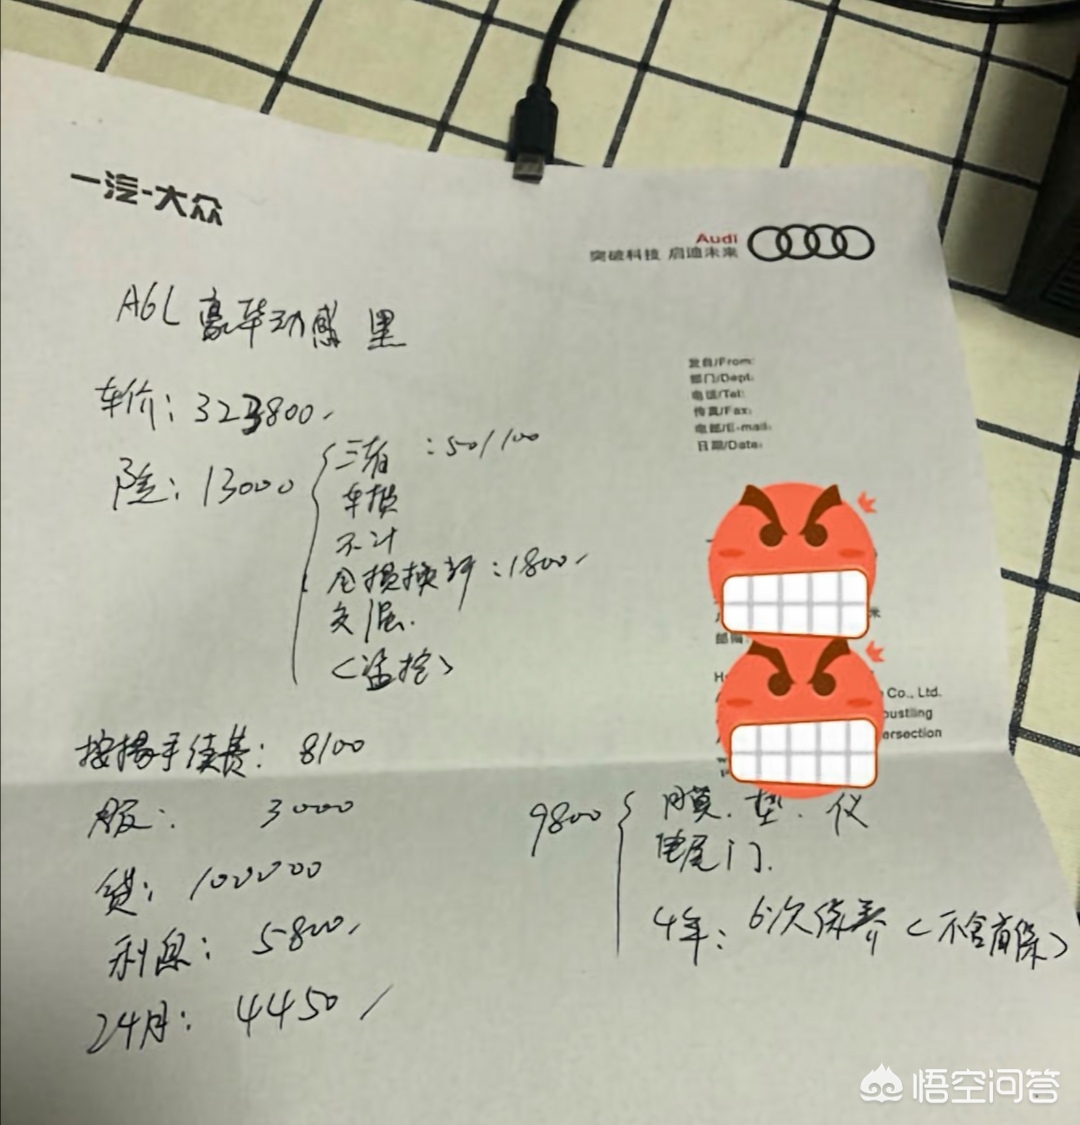 一汽-大众
Audi
突破科技 启迪未来
A6L 豪华动感 黑
发自/From:
部门/Dept:
电话/Tel:
传真/Fax:
电邮/E-mail:
日期/Date:
车价: 323800
险: 13000
三者 : 50/100
车损
不计
全损换新 : 1800
交强
(监控)
邮编
Co., Ltd.
ustling
ersection
按揭手续费: 8100
服: 3000
贷: 100000
利息: 5800
24月: 4450
9800
膜. 垫. 仪
电尾门.
4年: 6次保养 (不含首保)
悟空问答